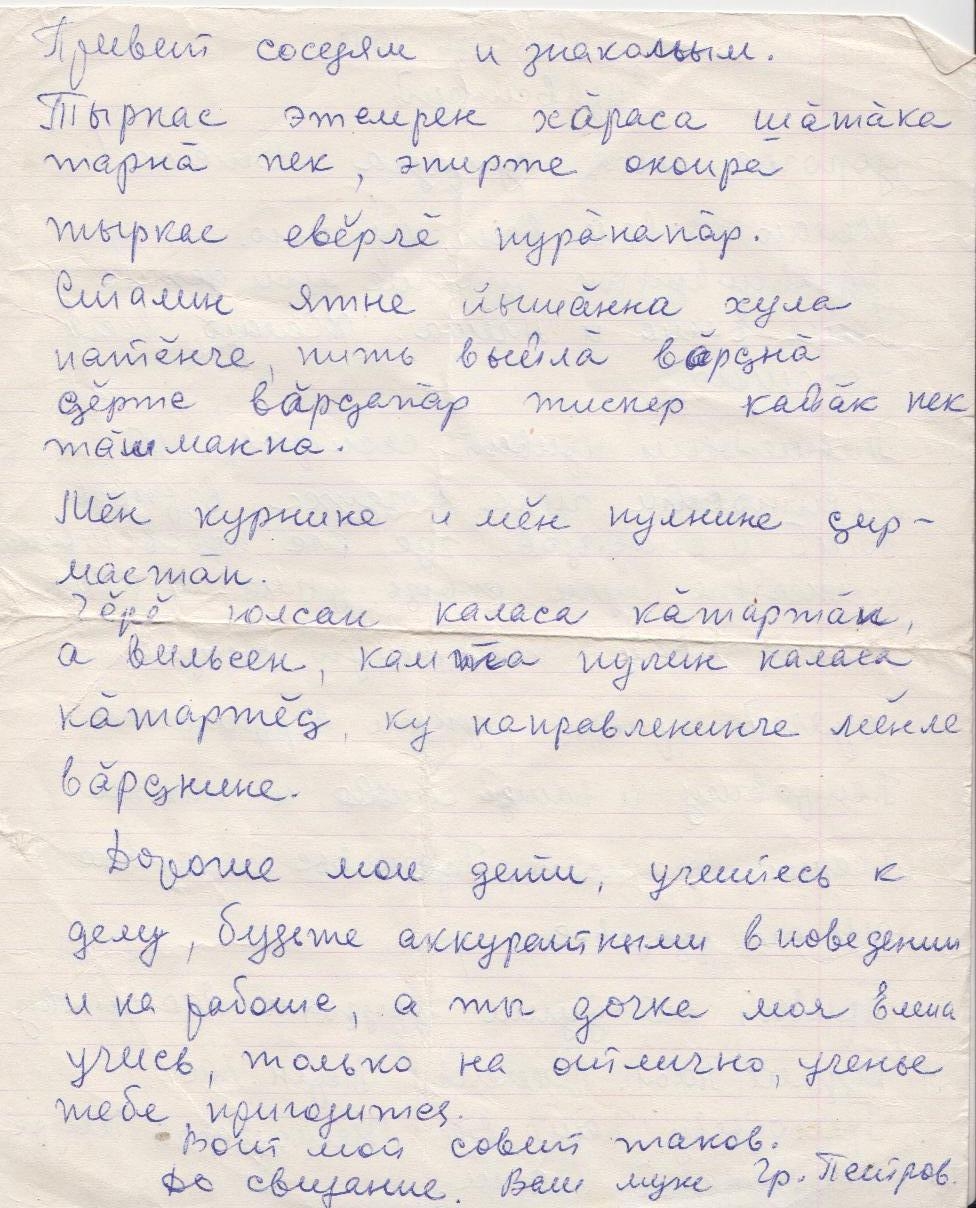 Привет соседям и знакомым.
Тыркас этемрен хӑраса шӑтӑка
тарнӑ пек, эпирте окопра
тыркас евӗрлӗ пурӑнапӑр.
Сталин ятне йышӑнна хула
патӗнче, пить выйлӑ вӑрҫнӑ
ҫӗрте вӑрҫапӑр тискер кайӑк пек
тӑшманпа.
Мӗн курнине и мӗн пулнине ҫыр-
мастӑп.
Чӗрӗ юлсан каласа кӑтартӑп,
а вильсен, кампа пулин каласа
кӑтартӗҫ, ку направленинче мӗнле
вӑрҫнине.
Дорогие мои дети, учитесь к
делу, будьте аккуратными в поведении
и на работе, а ты дочка моя Елена
учись, только на отлично, ученье
тебе пригодится.
Вот мой совет таков.
До свидание. Ваш муж Гр. Петров.